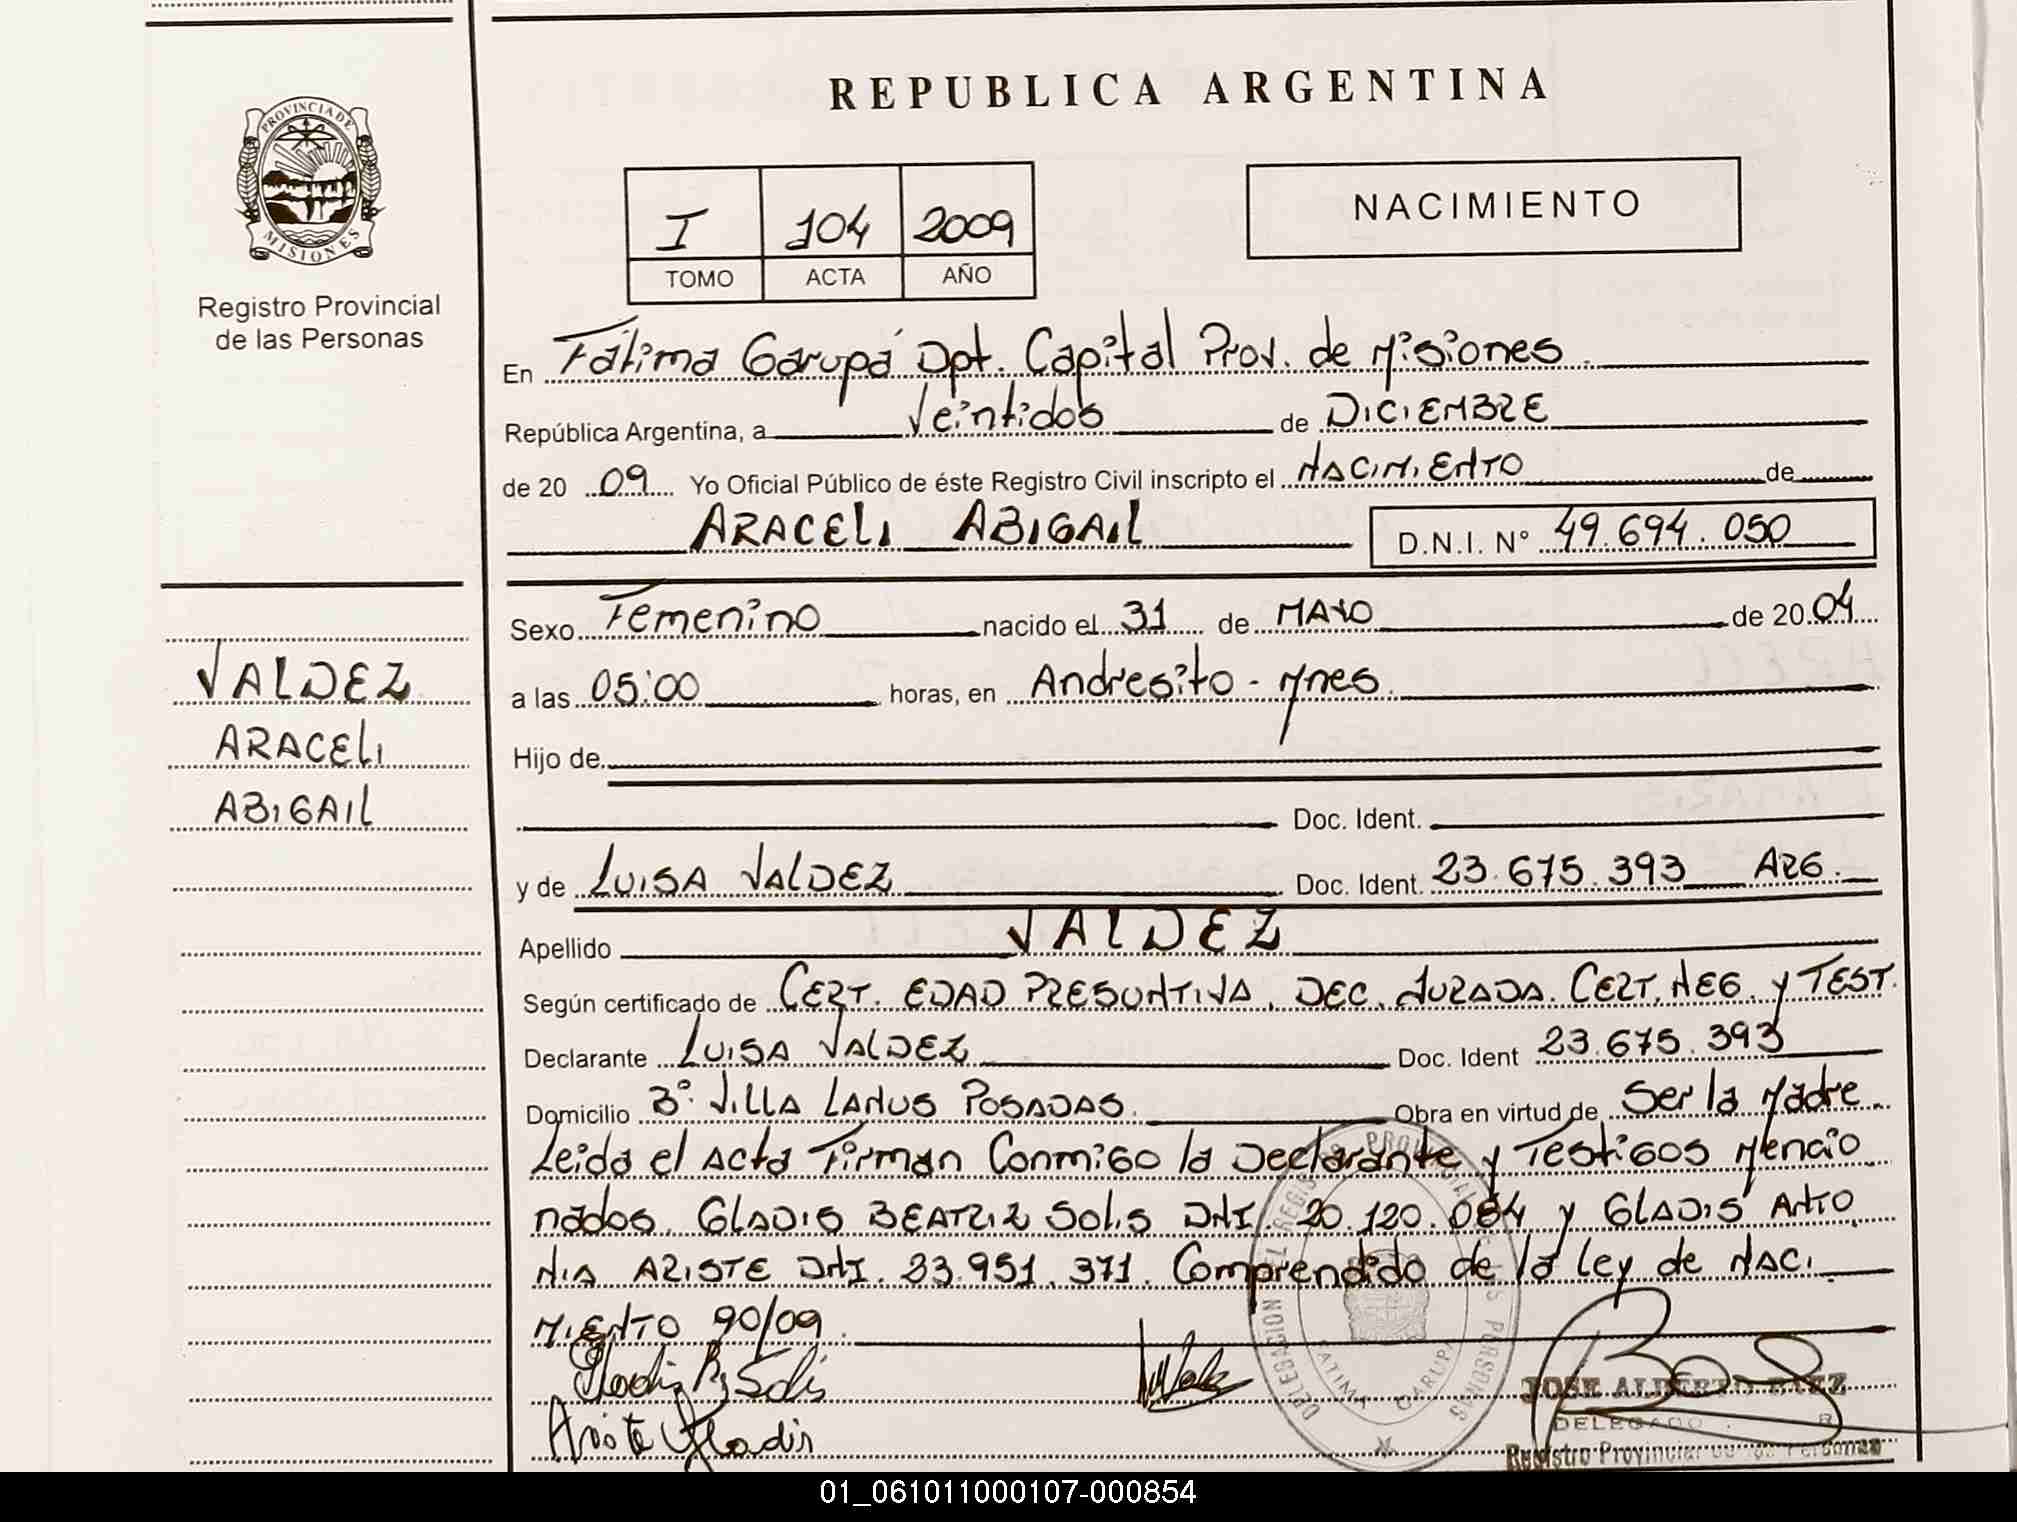 REPUBLICA ARGENTINA
PROVINCIA DE
MISIONES
Registro Provincial
de las Personas
I 104 2009
TOMO ACTA AÑO
NACIMIENTO
En Fátima Garupá Dpt. Capital Prov. de Misiones.
República Argentina, a Veintidos de DICIEMBRE
de 20 09 Yo Oficial Público de éste Registro Civil inscripto el NACIMIENTO de
ARACELI ABIGAIL D.N.I. N° 49.694.050
Sexo Femenino nacido el 31 de MAYO de 2004
VALDEZ
ARACELI
ABIGAIL
a las 05:00 horas, en Andresito - Mnes.
Hijo de
Doc. Ident.
y de LUISA VALDEZ Doc. Ident. 23.675.393 ARG.
Apellido VALDEZ
Según certificado de CERT. EDAD PRESUNTIVA. DEC. JURADA. CERT. NEG. y TEST.
Declarante LUISA VALDEZ Doc. Ident 23.675.393
Domicilio B° VILLA LANUS POSADAS. Obra en virtud de Ser la Madre.
Leida el Acta Firman Conmigo la Declarante y Testigos Mencio
nados. GLADIS BEATRIZ SOLIS DNI. 20.120.084 y GLADIS ANTO
NIA ARISTE DNI. 33.951.371. Comprendido de la ley de NACI
MIENTO 90/09.
Gladis B. Solis
Ariste Gladis
DELEGACION DEL REGISTRO PROVINCIAL DE LAS PERSONAS
FATIMA GARUPA
JOSE ALBERTO BAEZ
DELEGADO
Registro Provincial de las Personas
01_061011000107-000854